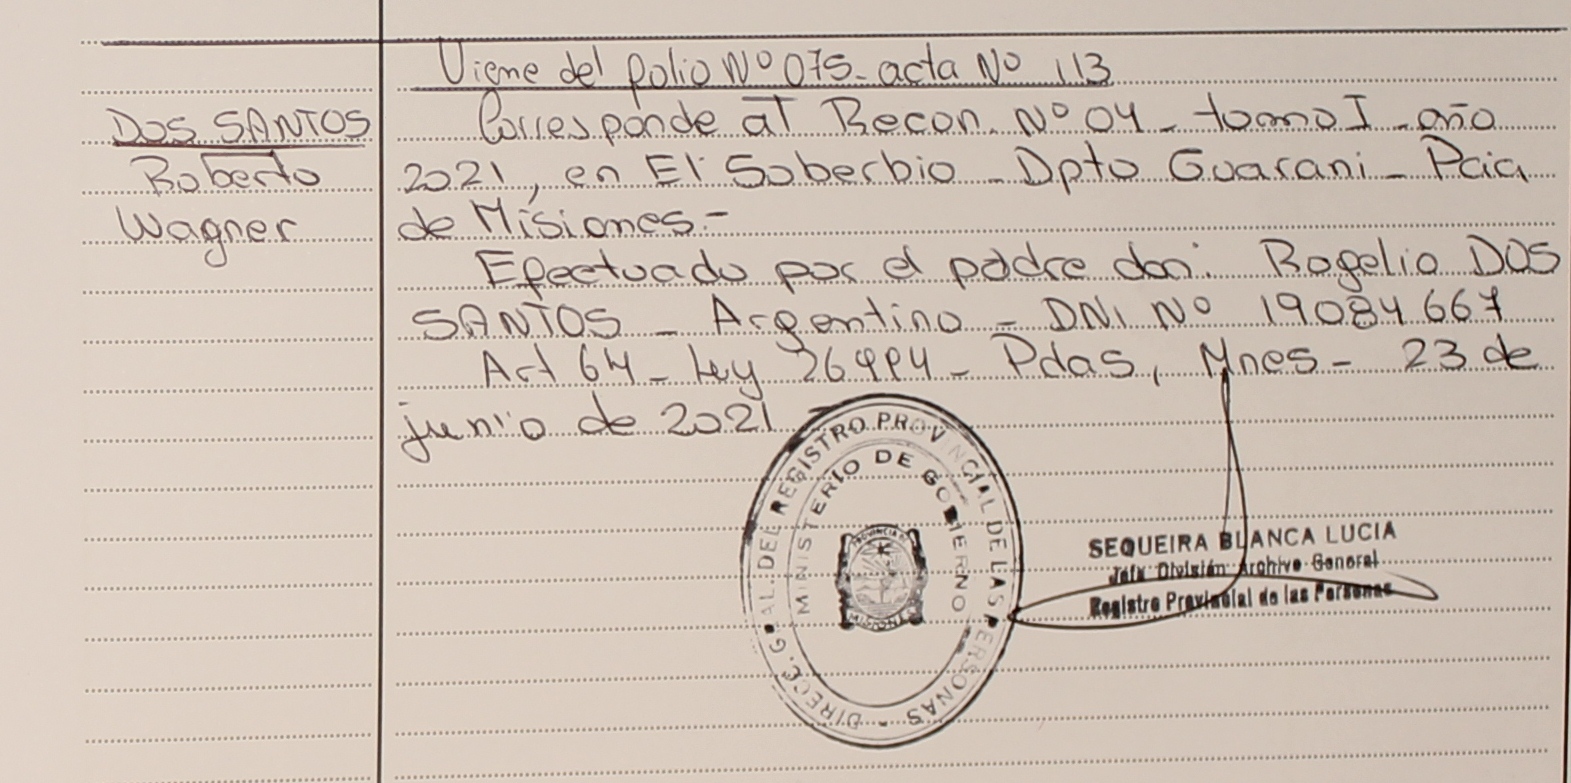 Viene del folio Nº 075- acta Nº 113
DOS SANTOS
Roberto
Wagner
Corresponde al Recon. Nº 04 - tomo I - año
2021, en El Soberbio - Dpto Guarani - Pcia
de Misiones.-
Efectuado por el padre don: Rogelio DOS
SANTOS - Argentino - DNI Nº 19084667
Art 64 - Ley 26994 - Pdas, Mnes - 23 de
junio de 2021 -
DIREC. GRAL. DEL REGISTRO PROVINCIAL DE LAS PERSONAS -
MINISTERIO DE GOBIERNO
PROVINCIA D
MISIONES
SEQUEIRA BLANCA LUCIA
Jefa División Archivo General
Registro Provincial de las Personas